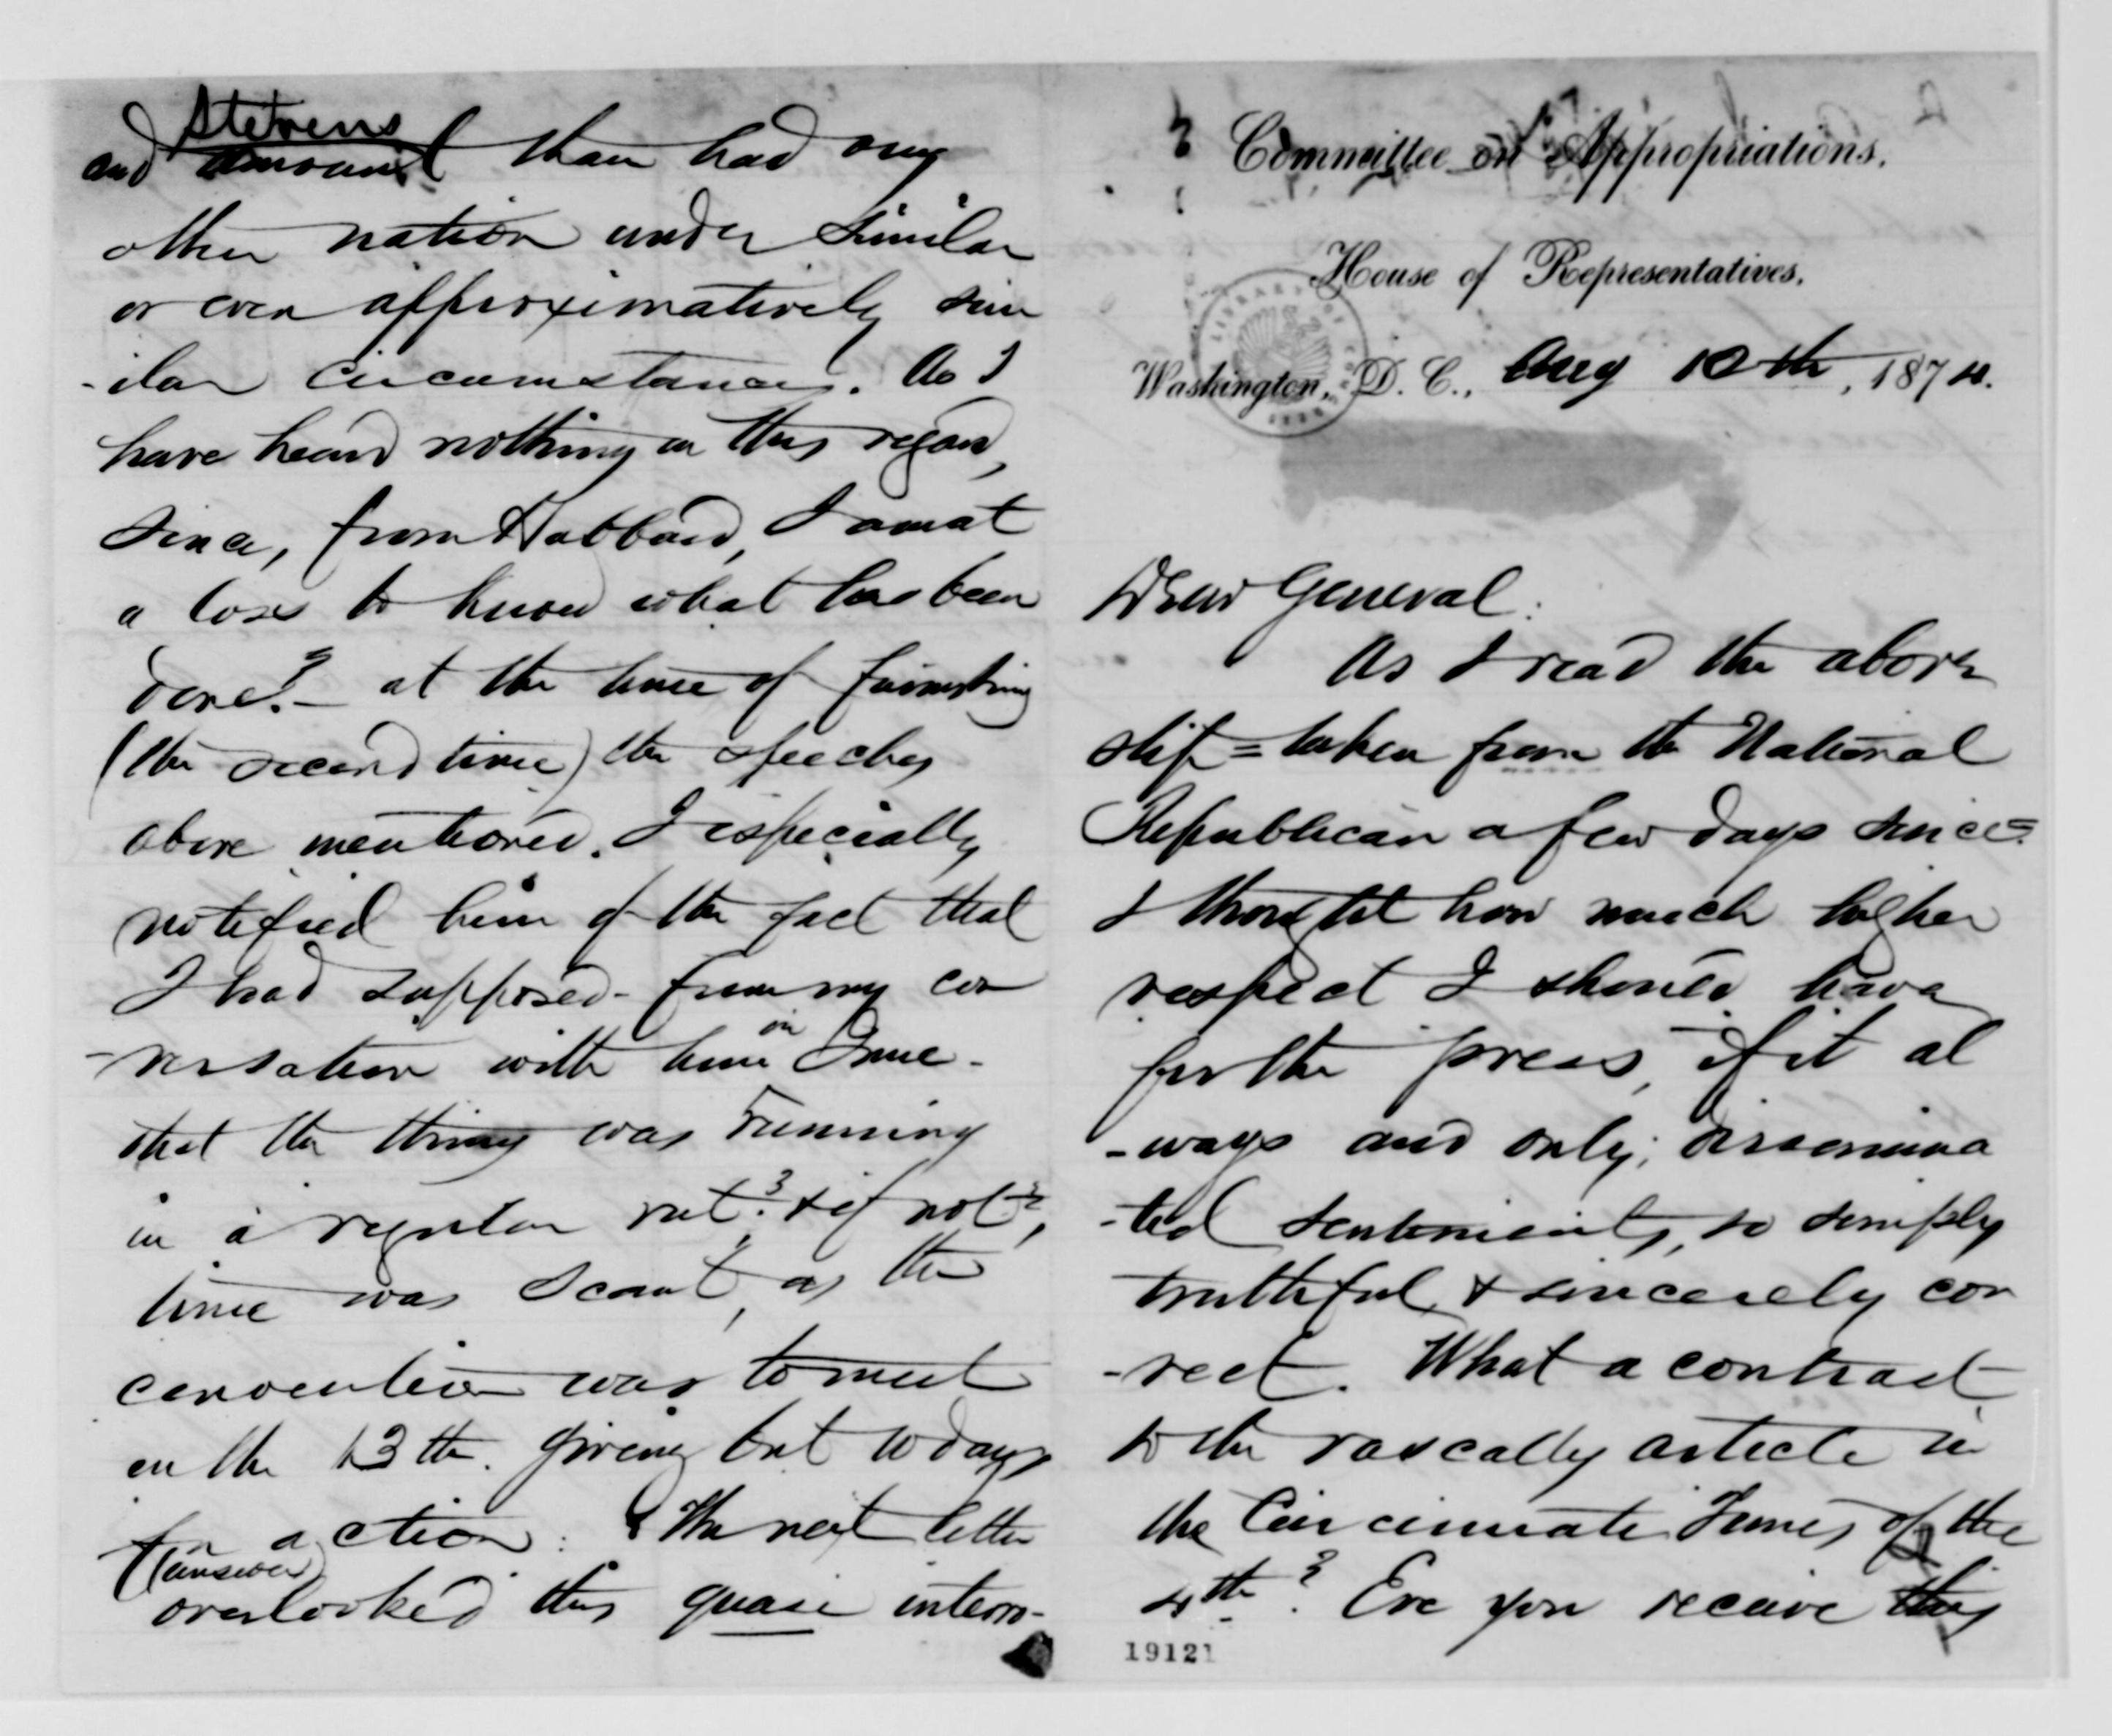 Committee on Appropriations.
House of Representatives.
Washington, D. C., Aug 10th, 1874.
Dear General:
As I read the above
slip = taken from the National
Republican a few days since =
I thought how much higher
respect I should have
for the press, if it al
-ways and only, dissemina
-ted sentiments, so simply
truthful, & sincerely cor
-rect. What a contrast
to the rascally article in
the Cincinnati Times of the
4th? Ere you receive this
19121
Stevens
and amount than had any
other nation under similar
or even approximatively sim
-ilar circumstances. As I
have heard nothing in this regard,
since, from Hubbard, I am at
a loss to know what has been
done? - at the time of furnishing
(the second time) the speeches
above mentioned. I especially
notified him of the fact that
I had supposed - from my con
-versation with him in June -
that the thing was running
in a regular rut? & if not?,
time was scant, as the
convention was to meet
on the 13th. giving but 10 days
for action. The next letter
(answer)
overlooked this quasi interro-